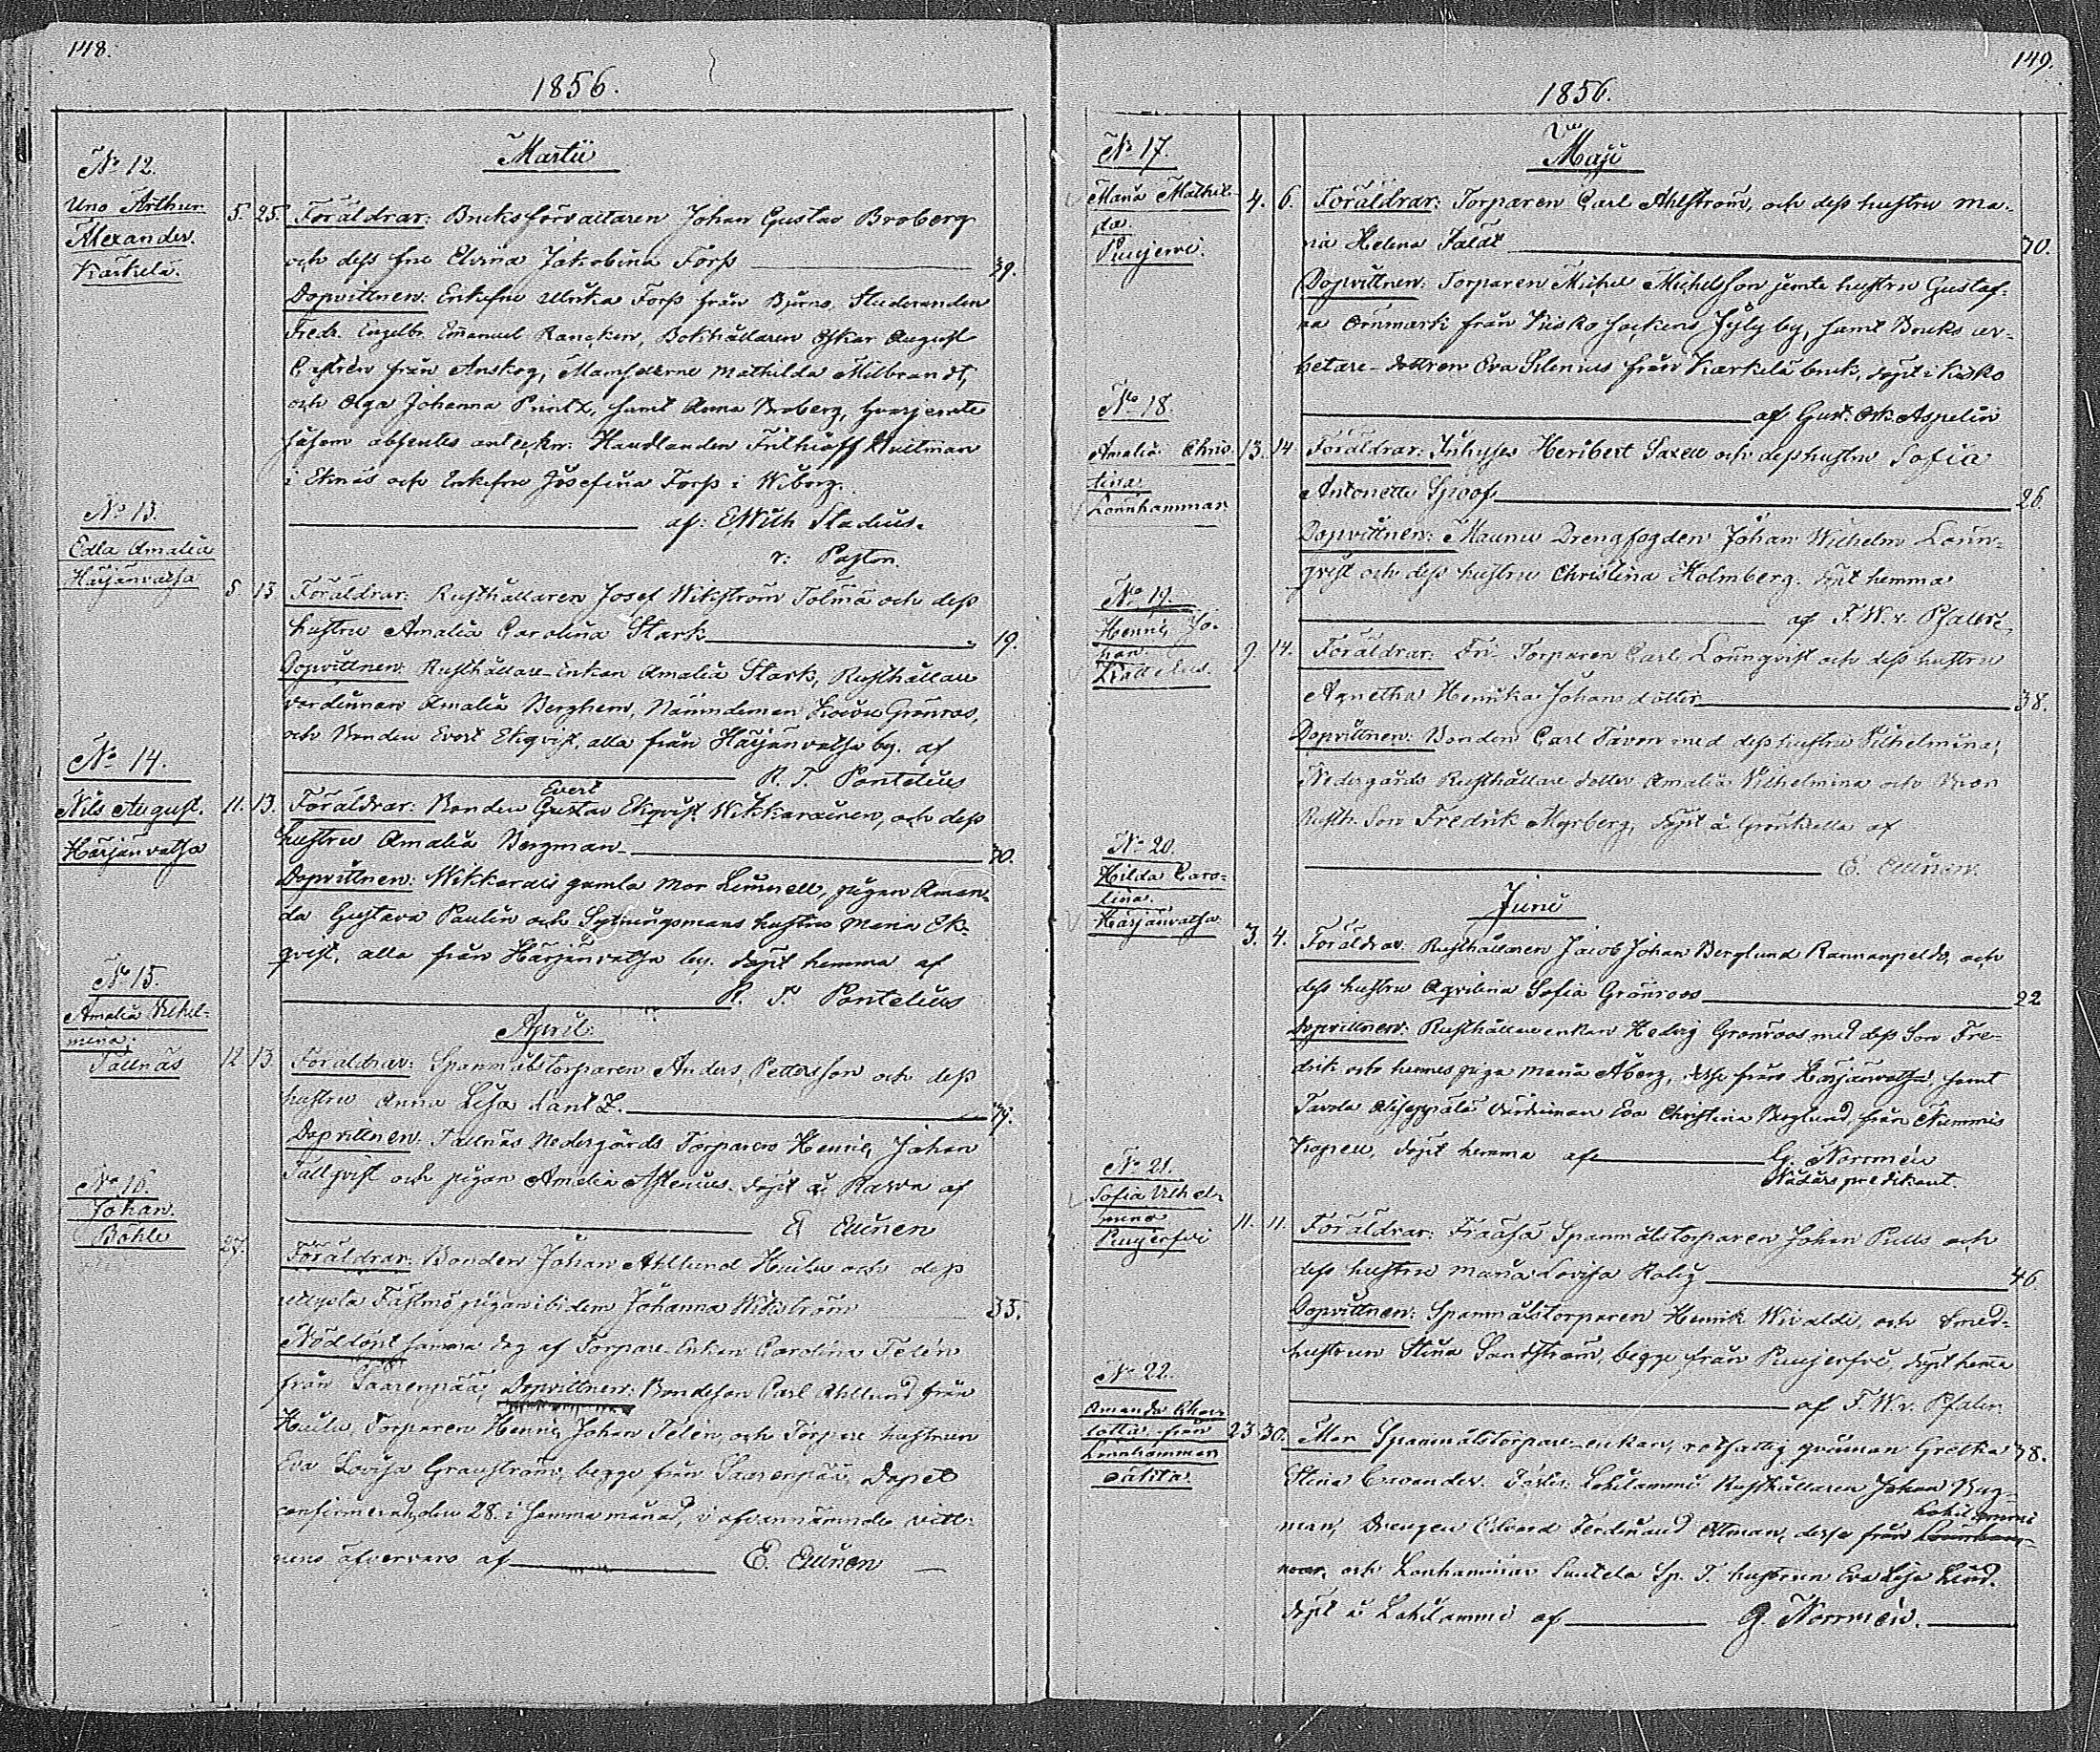 148.
1856.
Martii
No 12.
Uno Arthur
Alexander.
Karkela.
5. 25. Föräldrar: Bruksförvaltaren Johan Gustav Broberg
och dess fru Elvina Jakobina Forss 39.
Dopvittnen: Enkefru Ulrika Forss från Bjerno, Studeranden
Fredr. Engelbr. Emanuel Rancken, Bokhållaren Oskar August
från Anskog, Mamsellerne Mathilda Milbrandt,
och Olga Johanna Printz, samt Anna Broberg, hvarjemte
såsom absentes anteckn: Handlanden Frithioff Hultman
i Ekenäs och Enkefru Josefina Forss i Wiborg.
af: E Wilh Stadius.
v: Pastor.
No 13.
Edla Amalia
Härjänvatsa
5. 13 Föräldrar: Rusthållaren Josef Wikström Tolmä och dess
hustru Amalia Carolina Stark 19.
Dopvittnen: Rusthållare-Enkan Amalia Stark, Rusthållare
värdinnan Amalia Berghem, Nämndeman Grönroos,
och Bonden Evert Ekqvist, alla från Härjänvatsa by. af
R. T. Pontelius
No 14.
Nils August.
Härjänvatsa
Evert
11. 13. Föräldrar: Bonden Gustav Ekqvist Wikkarainen, och dess
hustru Amalia Bergman 30.
Dopvittnen: Wikkarais gamla Mor pigan Aman-
da Gustava Paulin och Sytningsmans hustru Maria Ek-
qvist, alla från Härjänvatsa by. döpt hemma af
R. T. Pontelius
April
No 15.
Amalia Vilhel-
mina,
Tallnäs
12. 13. Föräldrar: Spanmålstorparen Anders Pettersson och dess
hustru Anna Lisa
Dopvittnen: Tallnäs Nedergårds Torparen Henric Johan
Tallqvist och pigan Amalia döpt å af
E Eunen
No 16.
Johan.
Böhle
27. Föräldrar: Bonden Johan Ahllund Huila och dess
Fästmö pigan ibidem Johanna Wikström 35.
Nöddöpt samma dag af Torpare Enkan Carolina Telén
från Saarenpää, Dopvittnen: Bondeson Carl Ahllund från
Huila, Torparen Henric Johan Telén, och Torpare hustrun
Eva Lovisa Granström, begge från Saarenpää Dopet
confirmerad den 28. i samma månad, i ofvannämnda vitt-
nens öfvervaro af E. Eunen
149.
1856.
Maji
No 17.
Maria Mathil-
da.
Puujerwi.
4. 6. Föräldrar: Torparen Carl Ahlström, och dess hustru Ma-
ria Helena 30.
Dopvittnen: Torparen Michel Michelsson jemte hustru Gustaf-
va Örnmark från Kisko sockens by, samt Bruks ar-
betare-dottren Eva Silenius från Kärkelä bruk, döpt i Kisko
af Gust. Osk. Aspelin
No 18.
Amalia Chris-
tina
Lonnhammar
13. 14 Föräldrar: Inhyses Heribert Saxen och dess hustru Sofia
Antonetta Spoof 26.
Dopvittnen: Maunu Drengfogden Johan Wilhelm Lönn-
qvist och dess hustru Christina Holmberg. döpt hemma
af F. W. v. Pfaler
No 19.
Henric Jo-
han.
9. 14. Föräldrar: Fri- Torparen Carl Lönnqvist och dess hustru
Agnetha Henrika Johansdotter 38.
Dopvittnen: Bonden Carl med dess hustru Vilhelmina,
Nedergårds Rusthållare dotter Amalia Vilhelmina och
Rusth. Son Fredrik Myrberg, döpt å Grönkulla af
E. Eunen.
Junii
No 20.
Hilda Caro-
lina.
Härjänvatsa
3. 4. Föräldrar: Rusthållaren Jacob Johan Berglund Rannanpeldo, och
dess hustru Aqvilina Sofia Grönroos 22
Dopvittnen: Rusthållareenkan Hedvig Grönroos med dess Son Fre-
drik och hennes piga Maria Åberg, desse från Härjänvatsa, samt
Tavola värdinnan Eva Christina Berglund från Nummis
Kapell, döpt hemma af G. Norrmén
Nådårspredikant.
No 21.
Sofia Vilhel-
mina
Puujerfvi
11. 11. Föräldrar: Spanmålstorparen Johan och
dess hustru Maria Lovisa 46.
Dopvittnen: Spanmålstorparen Henrik och Smed-
hustrun Stina Sandström, begge från Puujerfvi, döpt hemma
af F. W. v. Pfaler
No 22.
Amanda Char-
lotta från
Lonnhammar
oäkta.
23 30. Mor Spanmålstorpare-enkan, qvinnan Gretka 38.
Stina Ervander. Lahilammi Rusthållaren Johan Berg-
Lahilammi
man, Drengen Edvard Ferdinand desse från Lonnham-
mar, och Lonhammar Sp. T. hustrun Eva Lisa Lind.
döpt å Lahilammi af G. Norrmén.